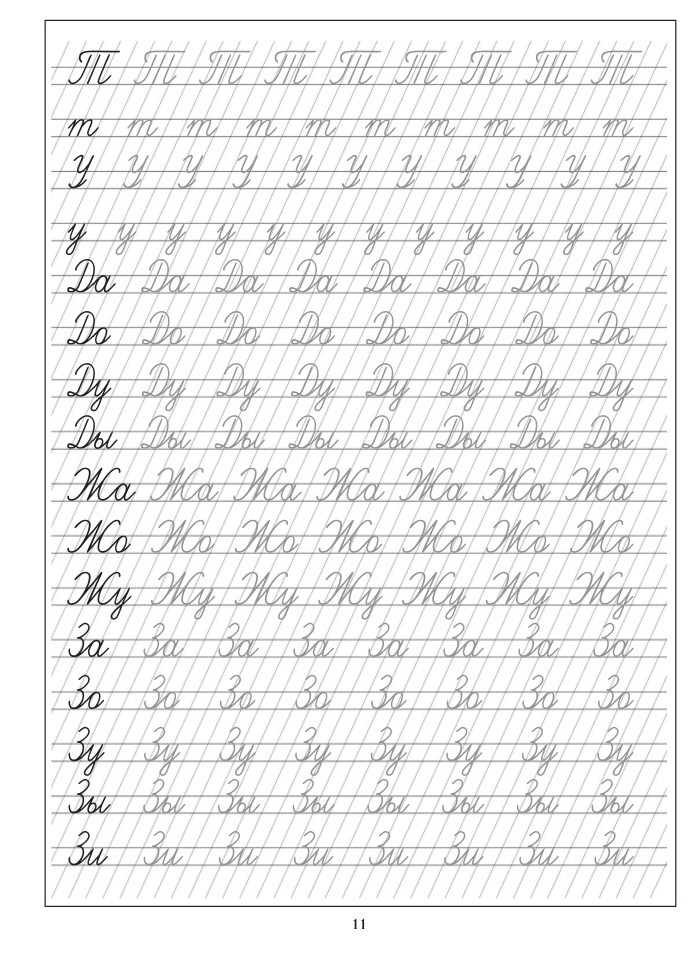 Т Т Т Т Т Т Т Т Т
т т т т т т т т т т
У У У У У У У У У У У
у у у у у у у у у у у у
Да Да Да Да Да Да Да Да
До До До До До До До До
Ду Ду Ду Ду Ду Ду Ду Ду
Ды Ды Ды Ды Ды Ды Ды Ды
Жа Жа Жа Жа Жа Жа Жа
Жо Жо Жо Жо Жо Жо Жо
Жу Жу Жу Жу Жу Жу Жу
За За За За За За За За
Зо Зо Зо Зо Зо Зо Зо Зо
Зу Зу Зу Зу Зу Зу Зу Зу
Зы Зы Зы Зы Зы Зы Зы Зы
Зи Зи Зи Зи Зи Зи Зи Зи
11